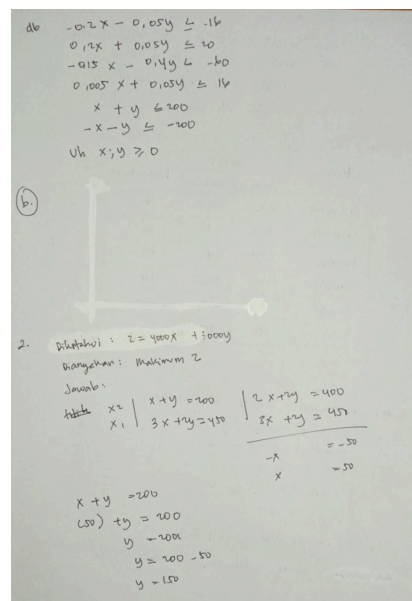 db -0,2x - 0,05y ≤ -16
0,2x + 0,05y ≤ 20
-0,15 x - 0,4y ≤ -60
0,005 x + 0,05y ≤ 16
x + y ≤ 200
-x - y ≤ -200
Uh x;y ≥ 0
b.
2. Diketahui : Z = 4000x + 3000y
Ditanyakan : Maksimum Z
Jawab :
x2 | x + y = 200 | 2x + 2y = 400
x1 | 3x + 2y = 450 | 3x + 2y = 450
-x = -50
x = 50
x + y = 200
(50) + y = 200
y = 200
y = 200 - 50
y = 150